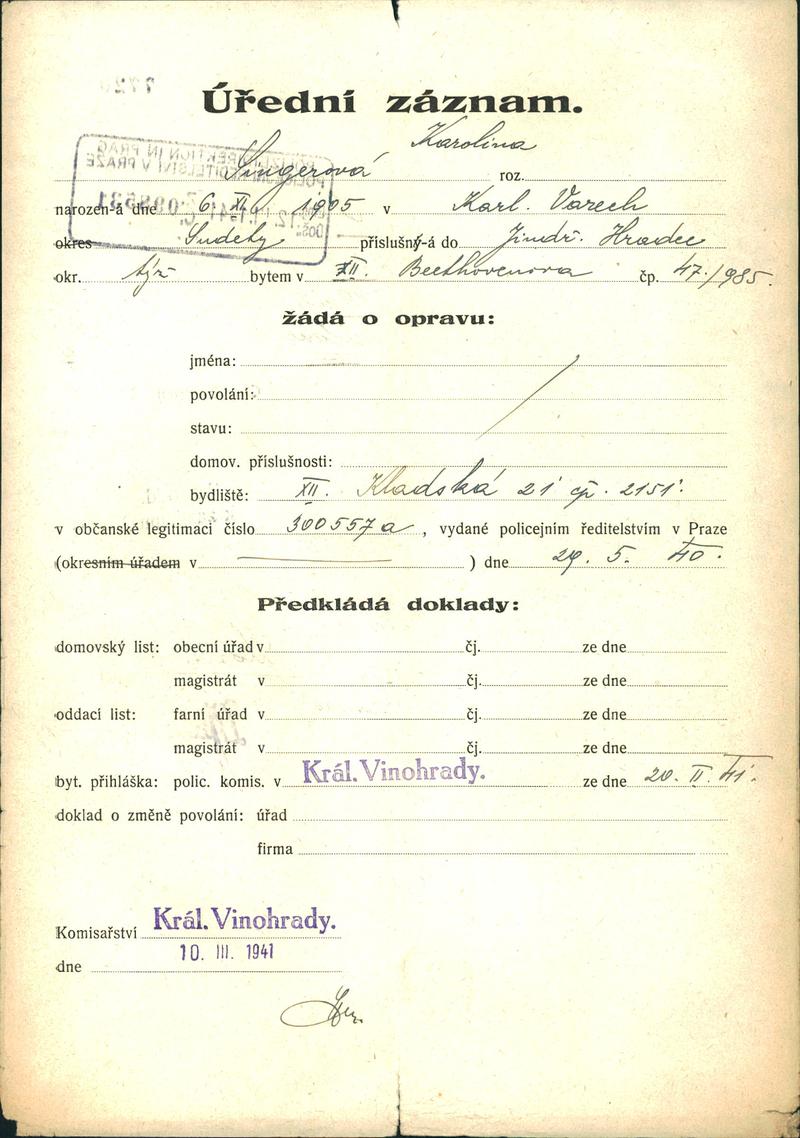 Úřední záznam.
Karolina
Singerová roz.
narozen-á dne 6. XI. 1905 v Karl. Varech
okres Sudety příslušný-á do Jindř. Hradec
okr. týž bytem v XII. Beethovenova čp. 47./985.
žádá o opravu:
jména:
povolání:
stavu:
domov. příslušnosti:
bydliště: XII. Kladská 21 čp. 2151.
v občanské legitimaci číslo 300557a, vydané policejním ředitelstvím v Praze
(okresním úřadem v ) dne 29. 5. 40.
Předkládá doklady:
domovský list: obecní úřad v čj. ze dne
magistrát v čj. ze dne
oddací list: farní úřad v čj. ze dne
magistrát v čj. ze dne
byt. přihláška: polic. komis. v Král. Vinohrady. ze dne 20. II. 41.
doklad o změně povolání: úřad
firma
Komisařství Král. Vinohrady.
dne 10. III. 1941